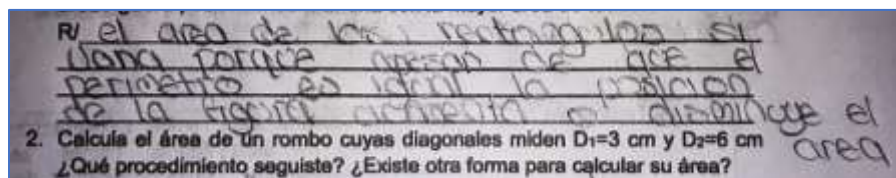 R/ el area de los rectangulos si
porque apesar de qce el
perimetro es igual la posicion
de la figura aumenta o disminuye el area
2. Calcula el área de un rombo cuyas diagonales miden D₁=3 cm y D₂=6 cm
¿Qué procedimiento seguiste? ¿Existe otra forma para calcular su área?